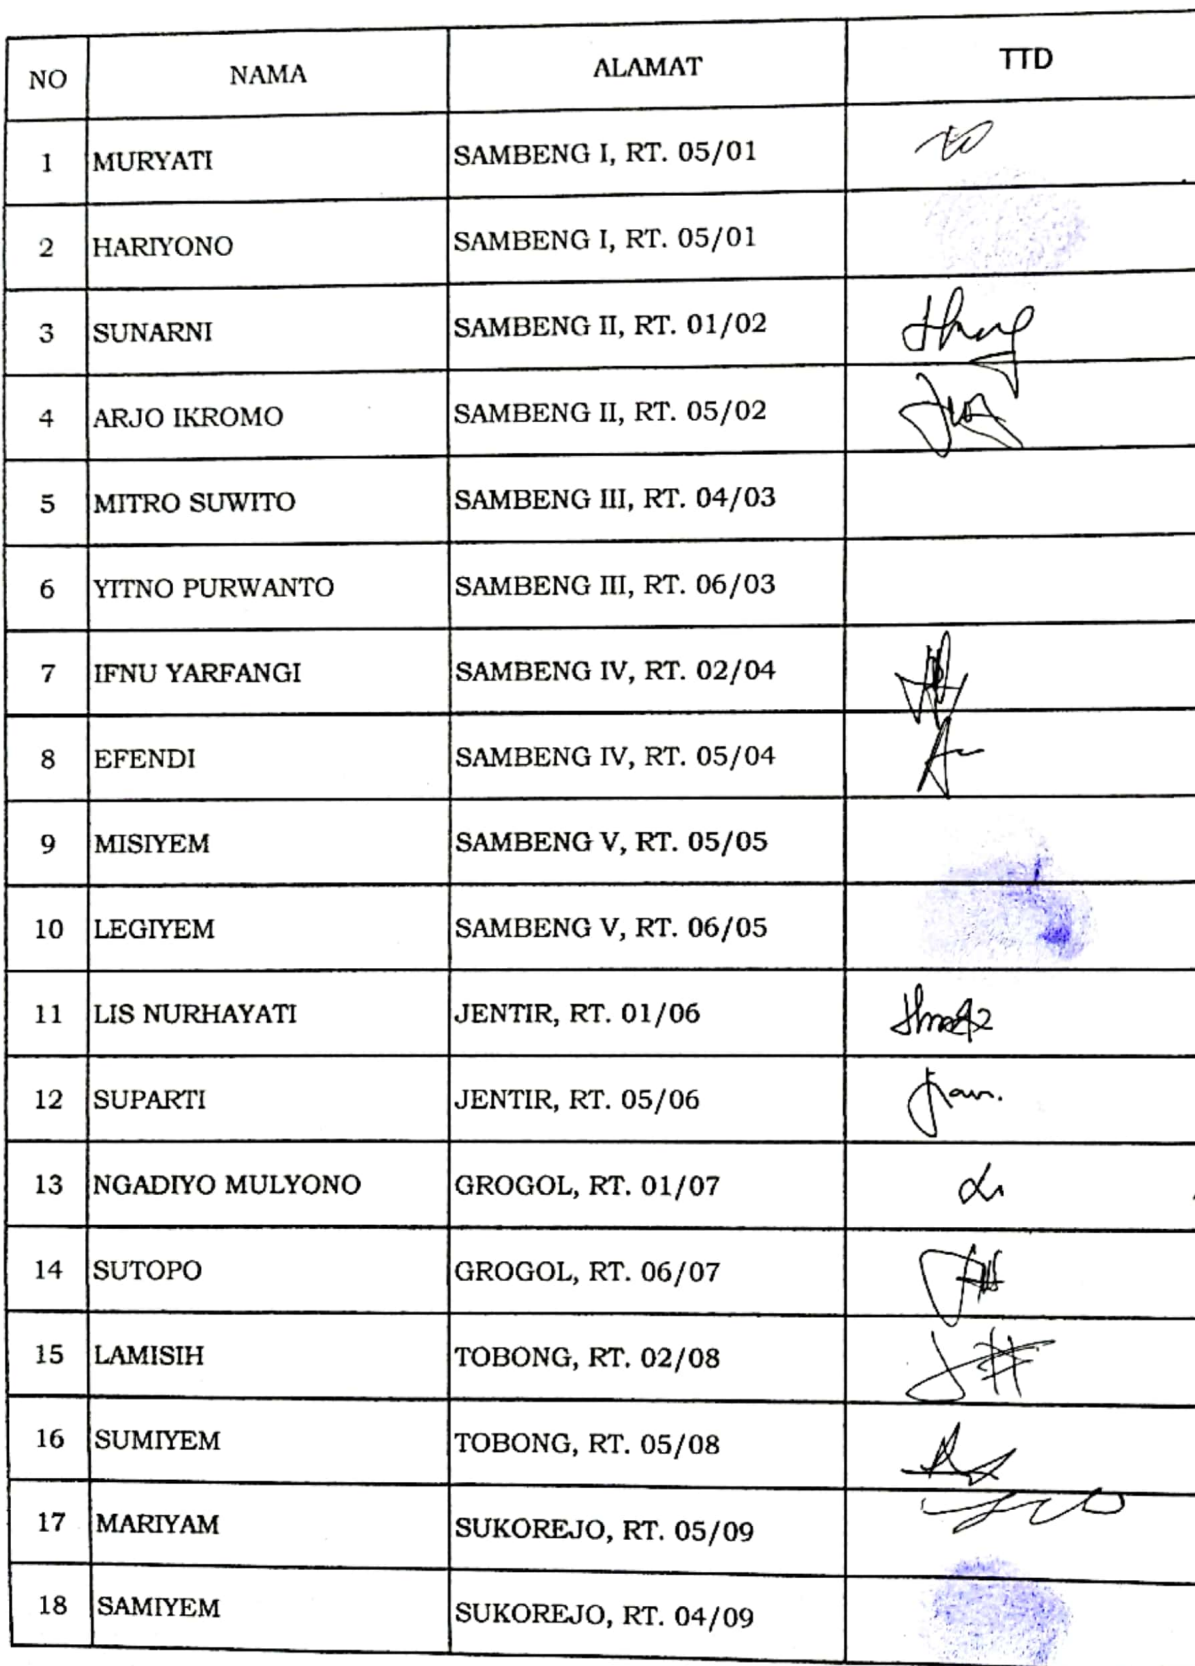 NO NAMA ALAMAT TTD
1 MURYATI SAMBENG I, RT. 05/01
2 HARIYONO SAMBENG I, RT. 05/01
3 SUNARNI SAMBENG II, RT. 01/02
4 ARJO IKROMO SAMBENG II, RT. 05/02
5 MITRO SUWITO SAMBENG III, RT. 04/03
6 YITNO PURWANTO SAMBENG III, RT. 06/03
7 IFNU YARFANGI SAMBENG IV, RT. 02/04
8 EFENDI SAMBENG IV, RT. 05/04
9 MISIYEM SAMBENG V, RT. 05/05
10 LEGIYEM SAMBENG V, RT. 06/05
11 LIS NURHAYATI JENTIR, RT. 01/06
12 SUPARTI JENTIR, RT. 05/06
13 NGADIYO MULYONO GROGOL, RT. 01/07
14 SUTOPO GROGOL, RT. 06/07
15 LAMISIH TOBONG, RT. 02/08
16 SUMIYEM TOBONG, RT. 05/08
17 MARIYAM SUKOREJO, RT. 05/09
18 SAMIYEM SUKOREJO, RT. 04/09